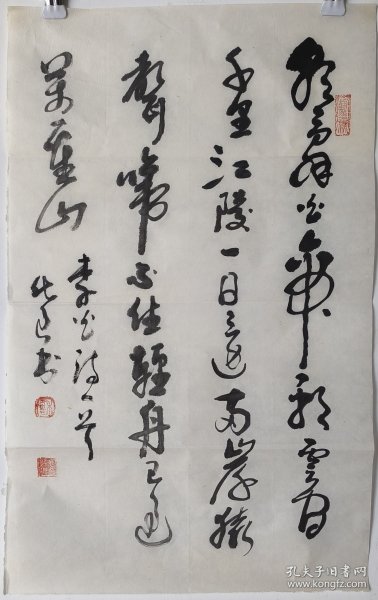 朝辭白帝彩雲間
千里江陵一日還兩岸猿
聲啼不住輕舟已過
萬重山
李白詩一首
书
孔夫子旧书网
www.kongfz.com